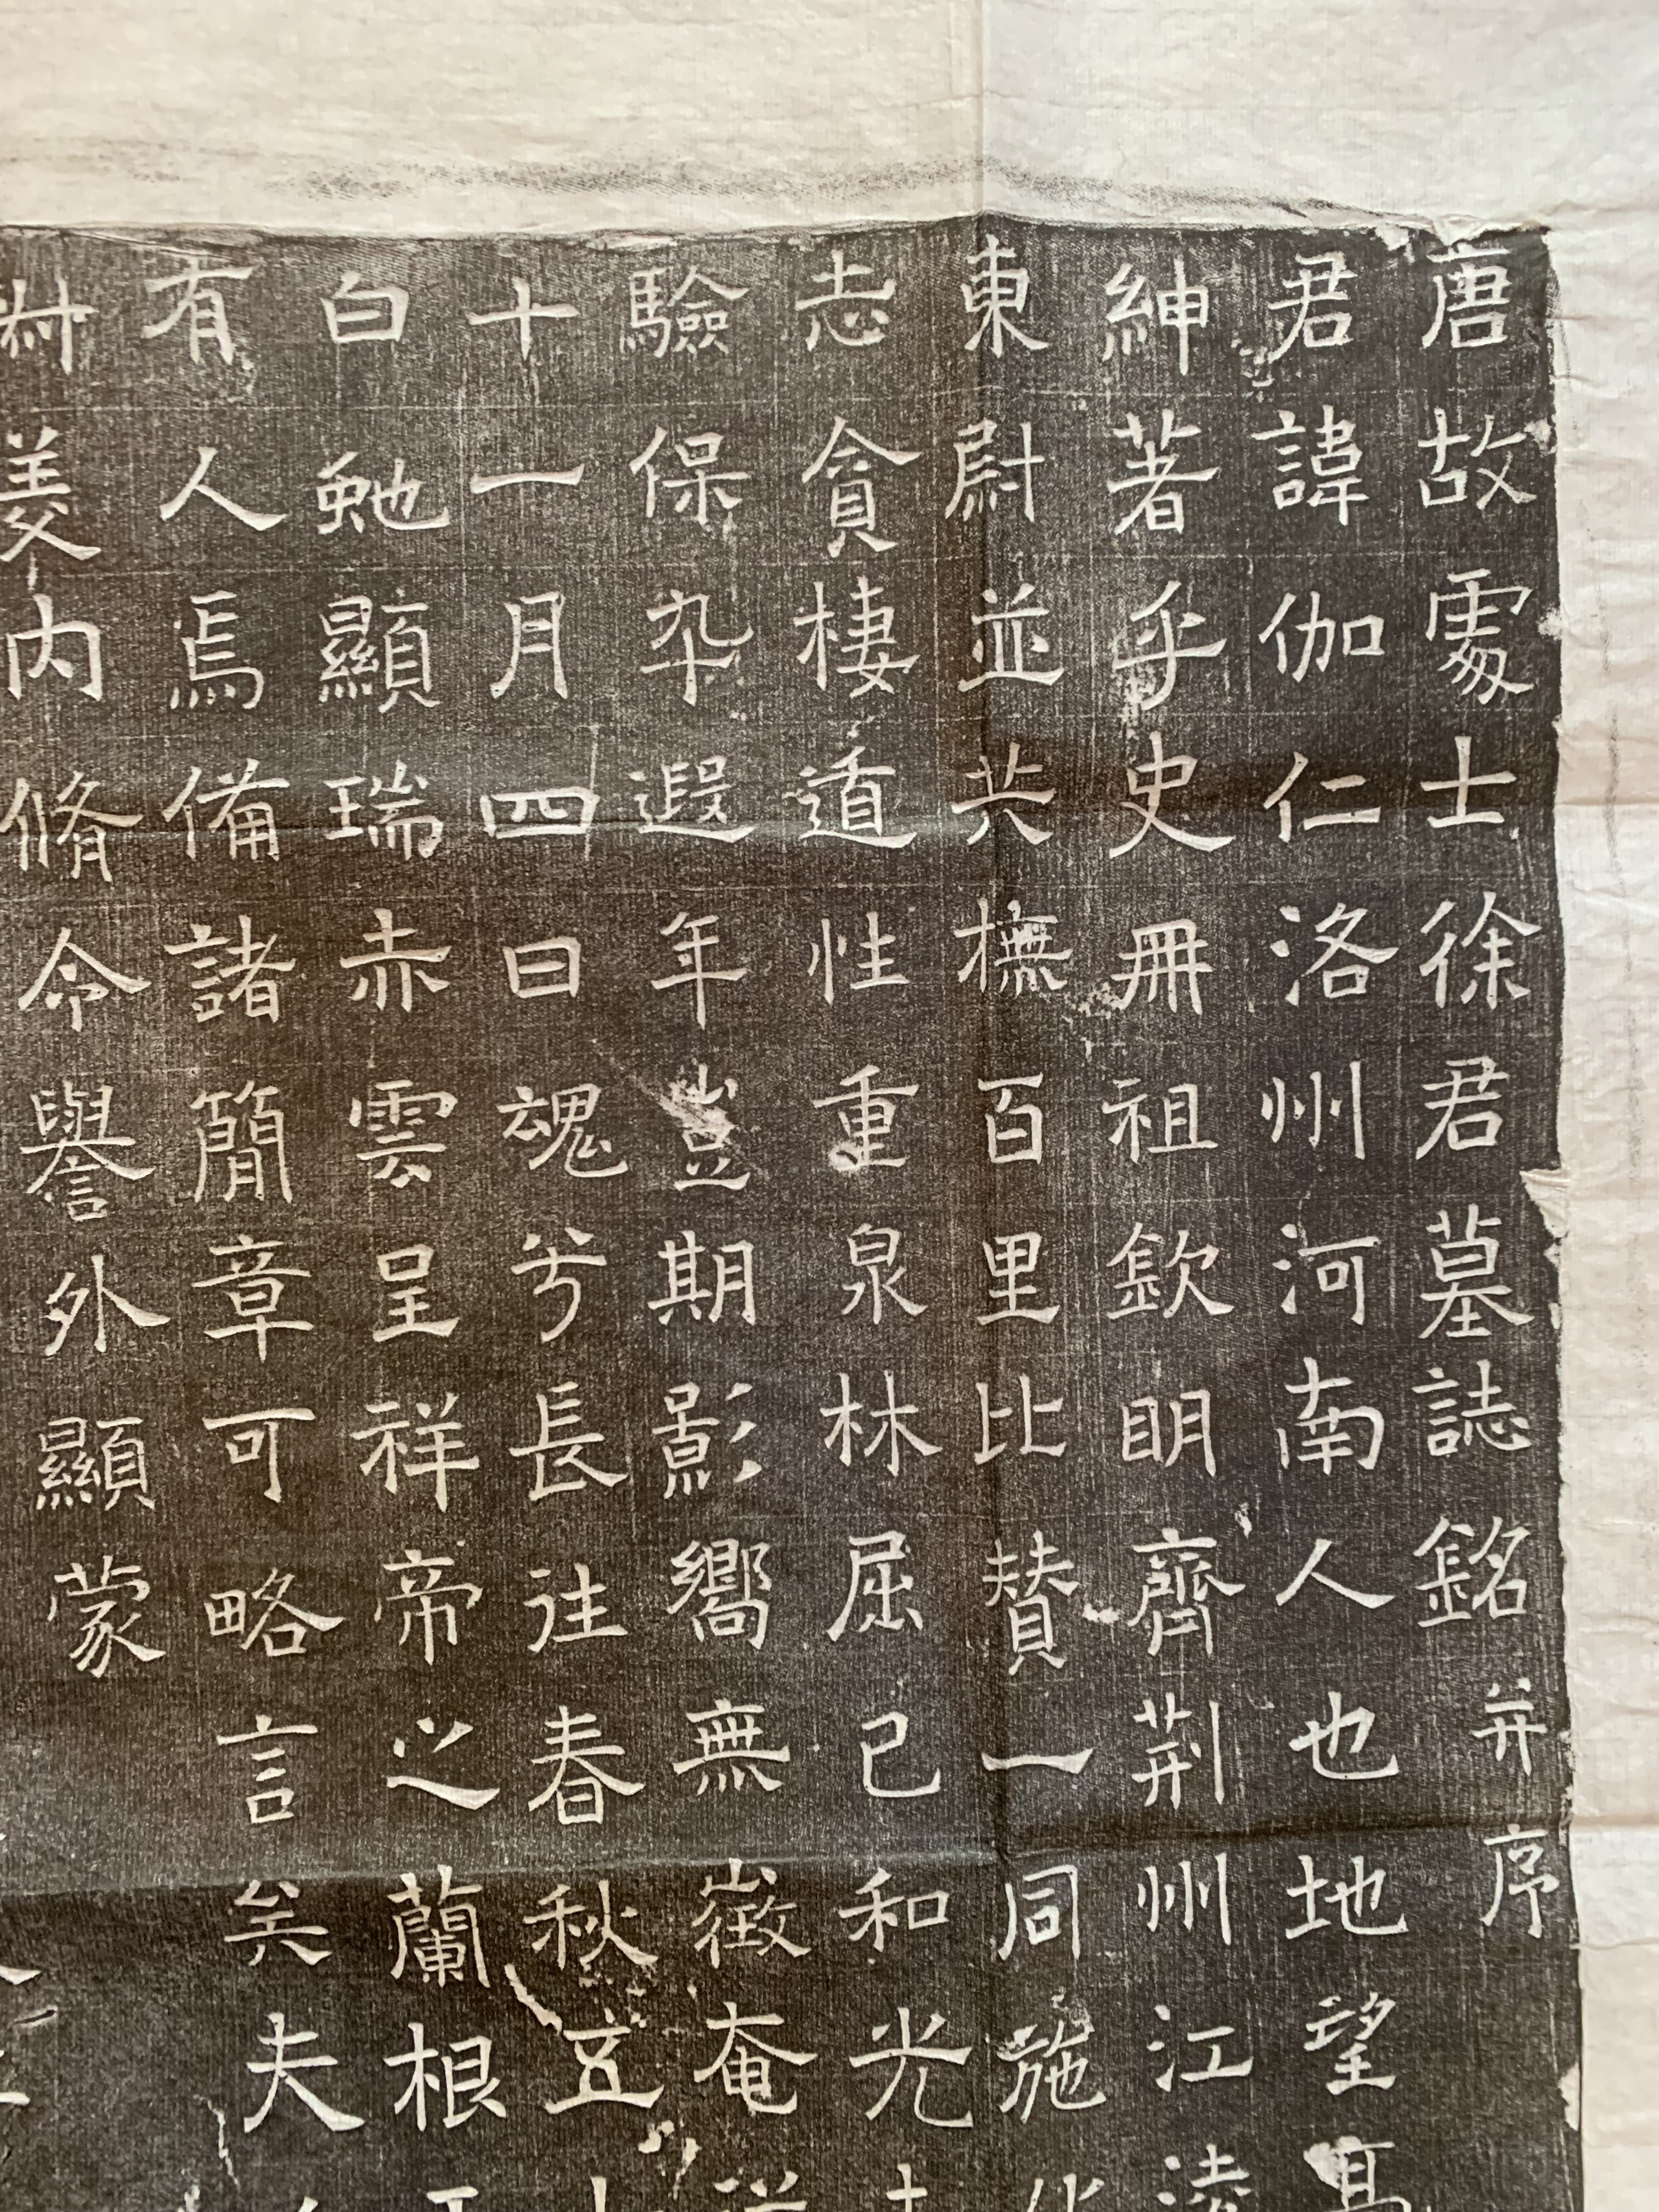 唐故處士徐君墓誌銘并序
君諱伽仁洛州河南人也地望高
紳著乎史冊祖欽明齊荆州江淩
東尉並共撫百里比賛一同施化
志貪棲道性重泉林屈己和光
驗保卒遐年豈期影嚮無徵奄
十一月四日魂兮長往春秋五十
白虵顯瑞赤雲呈祥帝之蘭根
有人焉備諸簡章可略言矣夫
美内脩令譽外顯蒙